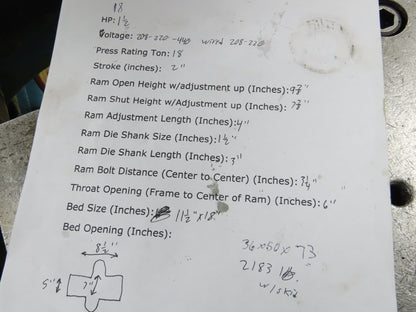 18
HP: 1½
Voltage: 208-220-440 wired 208-220
Press Rating Ton: 18
Stroke (inches): 2"
Ram Open Height w/adjustment up (Inches):
Ram Shut Height w/Adjustment up (Inches):
Ram Adjustment Length (Inches): 4"
Ram Die Shank Size (Inches): 1½"
Ram Die Shank Length (Inches):
Ram Bolt Distance (Center to Center) (Inches): 3¼"
Throat Opening (Frame to Center of Ram) (Inches): 6"
Bed Size (Inches): 11½" x 18"
Bed Opening (Inches):
8½"
5"
36x50x73
2183 lb.
w/skid